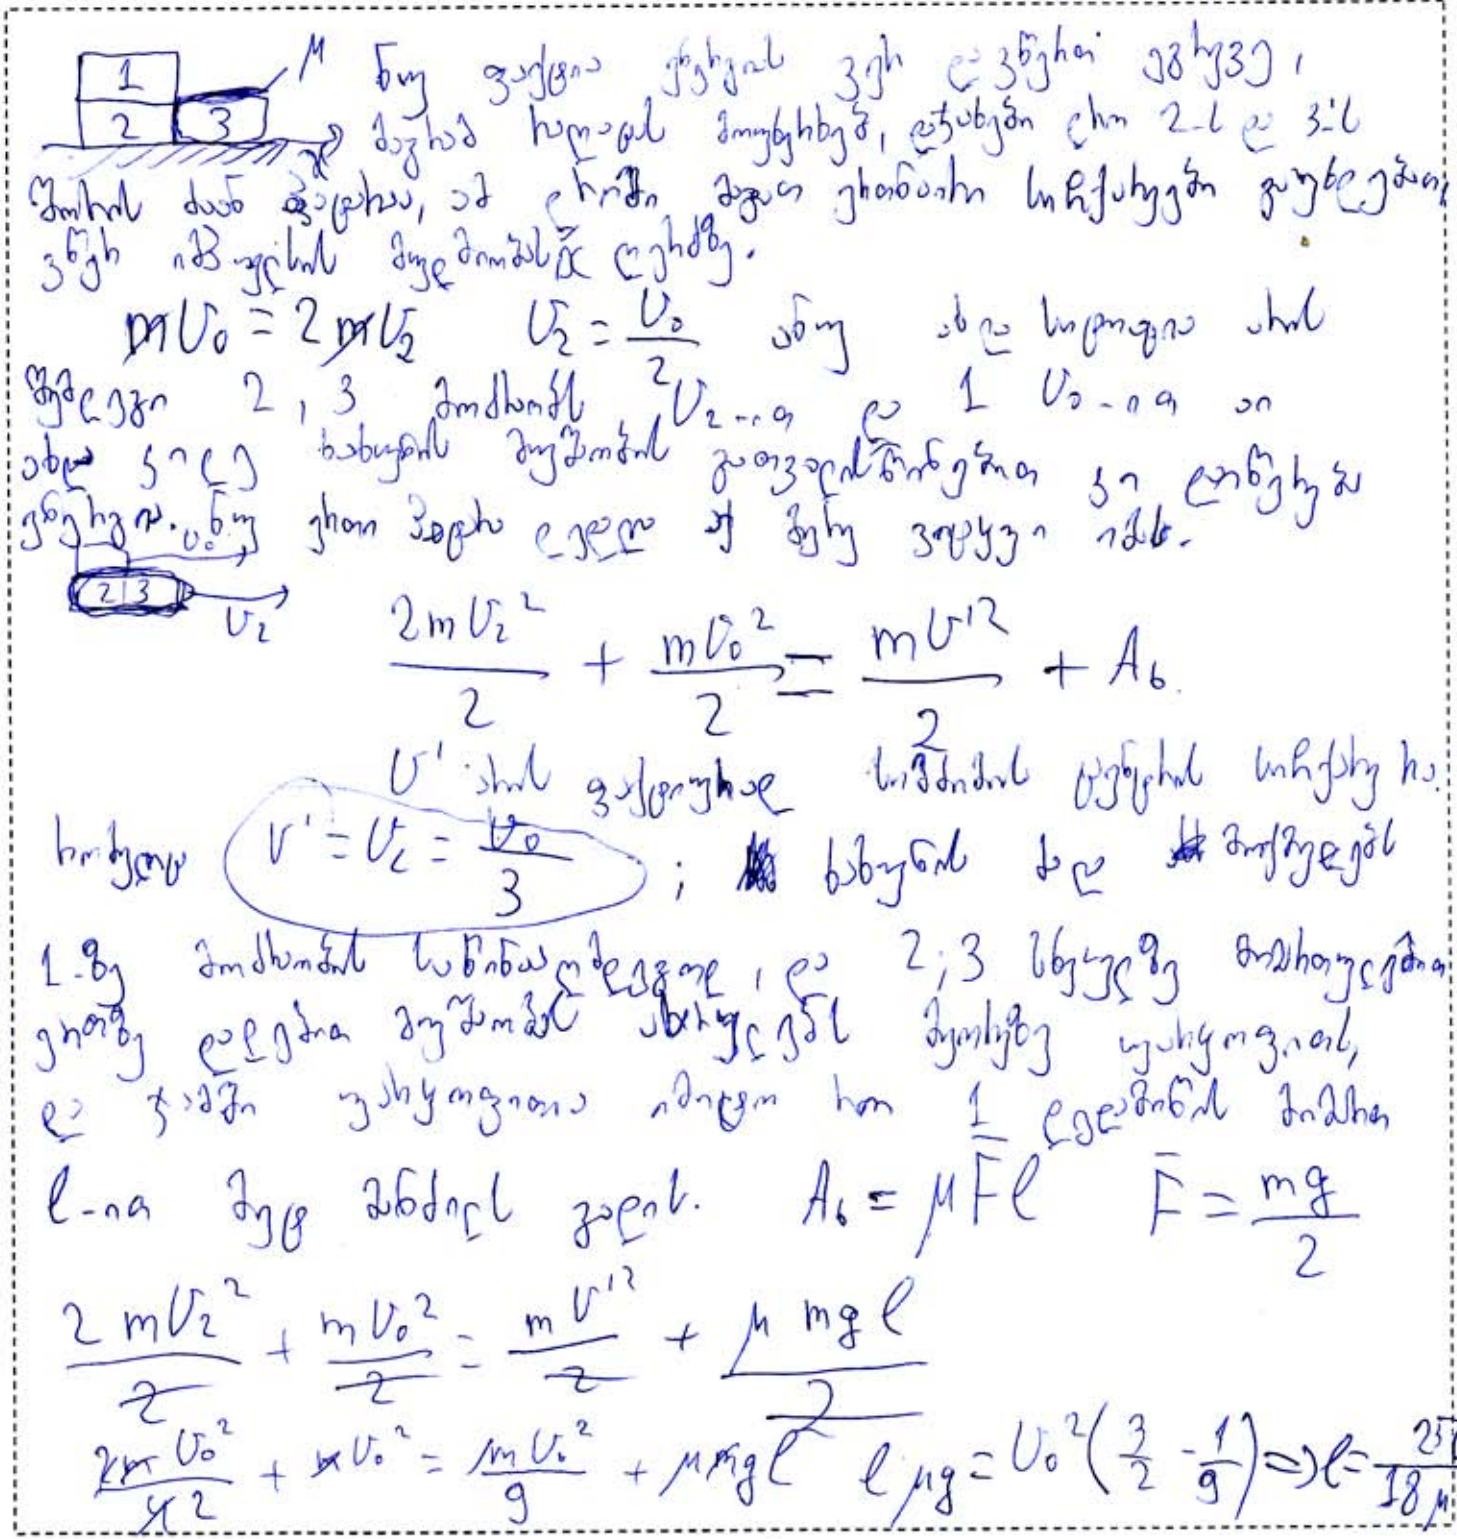 1 μ ნუ ფაქტია ენერგიას ვერ დავწერთ ეგრევე,
2 3 მაგრამ რაღაცას მოუხერხებ, დაჯახების დრო 2-ს და 3-ს
x
შორის ძაან პატარაა, ამ დროში მაგათ ერთნაირი სიჩქარეები გაუხდებათ,
ვწერ იმპულსის მუდმივობას x ღერძზე.
mU₀ = 2mU₂ U₂ = U₀/2 ანუ ახლა სიტუაცია არის
შემდეგი 2, 3 მოძრაობს U₂-ით და 1 U₀-ით აი
ახლა კიდე ხახუნის მუშაობის გათვალისწინებით კი დაიწერება
ენერგია. ნუ ერთი პატარა დეტალი აქ მერე ვიტყვი იმას.
U₀
2 | 3 U₂
2mU₂²/2 + mU₀²/2 = mU'²/2 + Aხ
U' არის ფაქტიურად სიმძიმის ცენტრის სიჩქარე რა.
რომელიც U' = U₂ = U₀/3 ; ხახუნის ძალა მოქმედებს
1-ზე მოძრაობის საწინააღმდეგოდ, და 2;3 სხეულზე მიმართულებით
ერთზე დადებით მუშაობას ასრულებს მეორეზე უარყოფითს,
და ჯამში უარყოფითია იმიტო რო 1 დედამიწის მიმართ
l-ით მეტ მანძილს გადის. Aხ = μF̄l F̄ = mg/2
2mU₂²/2 + mU₀²/2 = mU'²/2 + μmgl/2
2mU₀²/42 + mU₀² = mU₀²/9 + μmgl lμg = U₀²(3/2 - 1/9) => l = 25/18μ